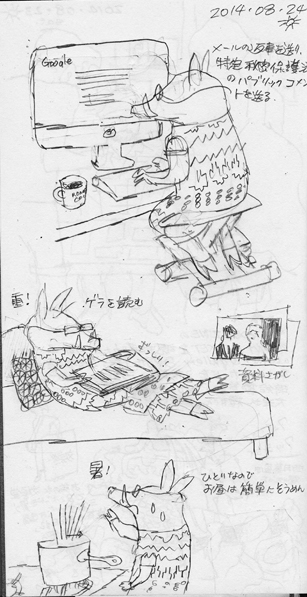 2014.08.24
メールの返事を送り、
特定秘密保護法
のパブリックコメン
トを送る.
Google
重!
ゲラを読む
ずっしり!
資料さがし
暑!
ひとりなので
お昼は簡単にそうめん